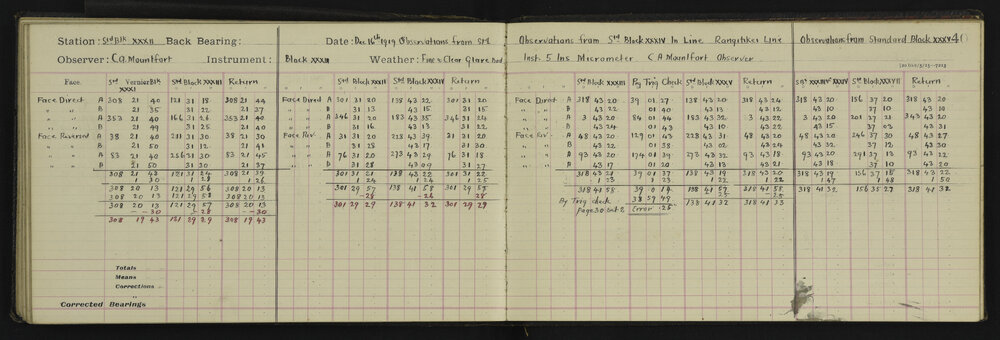 Station: Std Blk XXXII Back Bearing:
Observer: C A Mountfort Instrument:
Face Std Vernier Blk XXXI Std Block XXXIII Return
Face Direct A 308 21 40 121 31 18 308 21 44
" " B 21 35 31 22 21 37
" " A 353 21 40 166 31 26 353 21 40
" " B 21 49 31 25 21 40
Face Reversed A 38 21 40 211 31 30 38 21 30
" " B 21 50 31 12 21 41
" " A 83 21 40 256 31 30 83 21 45
" " B 21 50 31 30 21 37
308 21 43 121 31 24 308 21 39
1 30 1 28 1 26
308 20 13 121 29 56 308 20 13
308 20 13 121 29 58 308 20 13
308 20 13 121 29 57 308 20 13
- - 30 - 28 - - 30
308 19 43 121 29 29 308 19 43
Totals
Means
Corrections
Corrected Bearings
Date: Dec 16th 1919 Observations from Std
Block XXXIII Weather: Fine & Clear Glare
Std Block XXXII Std Block XXXIV Return
Face Direct A 301 31 20 138 43 22 301 31 20
" " B 31 13 43 15 31 15
" " A 346 31 20 183 43 35 346 31 24
" " B 31 16 43 13 31 22
Face Rev. A 31 31 20 213 43 39 31 31 20
" " B 31 28 43 17 31 30
" " A 76 31 20 273 43 29 76 31 18
" " B 31 28 43 09 31 27
301 31 21 138 43 22 301 31 22
1 24 1 24 1 25
301 29 57 138 41 58 301 29 57
28 26 28
301 29 29 138 41 32 301 29 29
Observations from Std Block XXXIV In Line Rangitikei Line
Inst. 5 Ins Micrometer C A Mountfort Observer
Std Block XXXIII By Trig Check Std Block XXXV Return
Face Direct A 318 43 20 39 01 27 138 43 20 318 43 24
" " B 43 22 01 40 43 13 43 12
" " A 3 43 20 84 01 44 183 43 32 3 43 22
" " B 43 24 01 43 43 10 43 22
Face Rev. A 48 43 20 129 01 43 228 43 31 48 43 20
" " B 43 22 01 38 43 02 43 24
" " A 93 43 20 174 01 39 273 43 32 93 43 18
" " B 43 17 01 20 43 13 43 21
318 43 21 39 01 37 138 43 19 318 43 20
1 23 1 23 1 22 1 22
318 41 58 39 0 14 138 41 57 318 41 58
By Trig check 38 59 49 25 25
page 30 Error 25 138 41 32 318 41 33
Observations from Standard Block XXXV 40
Std XXXIV Std XXXVII Return
318 43 20 156 37 20 318 43 20
43 10 37 10 43 10
3 43 20 201 37 21 343 43 20
43 15 37 02 43 31
48 43 20 246 37 30 48 43 27
43 32 37 12 43 30
93 43 20 291 37 13 93 43 22
43 18 37 10 43 20
318 43 19 156 37 15 318 43 22
1 47 1 48 1 50
318 41 32 156 35 27 318 41 32